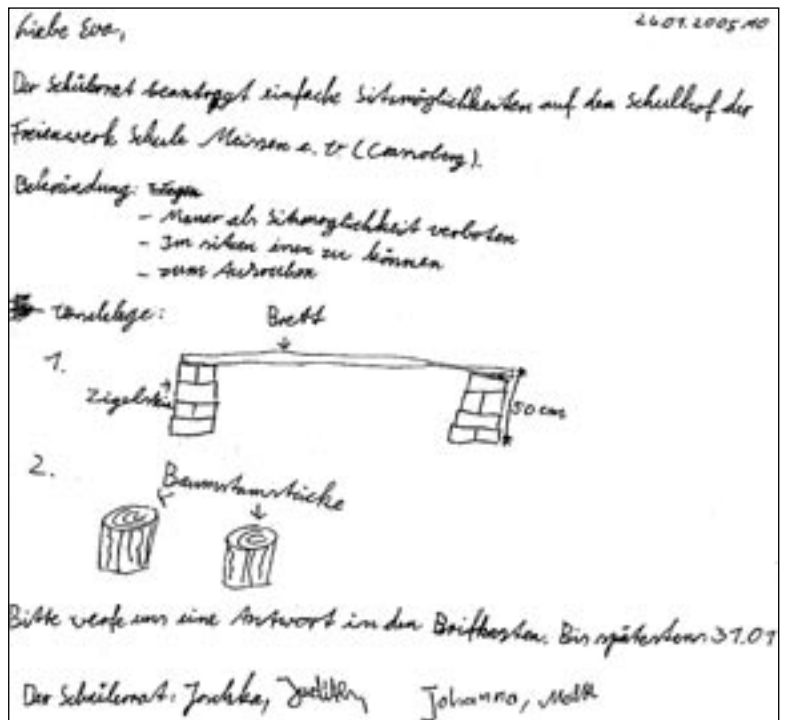 Liebe Eva,
24.01.2005 MO
Der Schülerrat beantragt einfache Sitzmöglichkeiten auf den Schulhof der
Freienwerk Schule Meissen e. V
Bekründung:
- Mauer als Sitzmöglichkeit verboten
- Im sitzen zu können
- zum Ausruhen
Brett
1.
Zigelstein
50 cm
2.
Baumstamstücke
Bitte werfe uns eine Antwort in den Brifkasten. Bis spätestens 31.01
Der Schülerrat, Joschka, Judith, Johanna, Maik